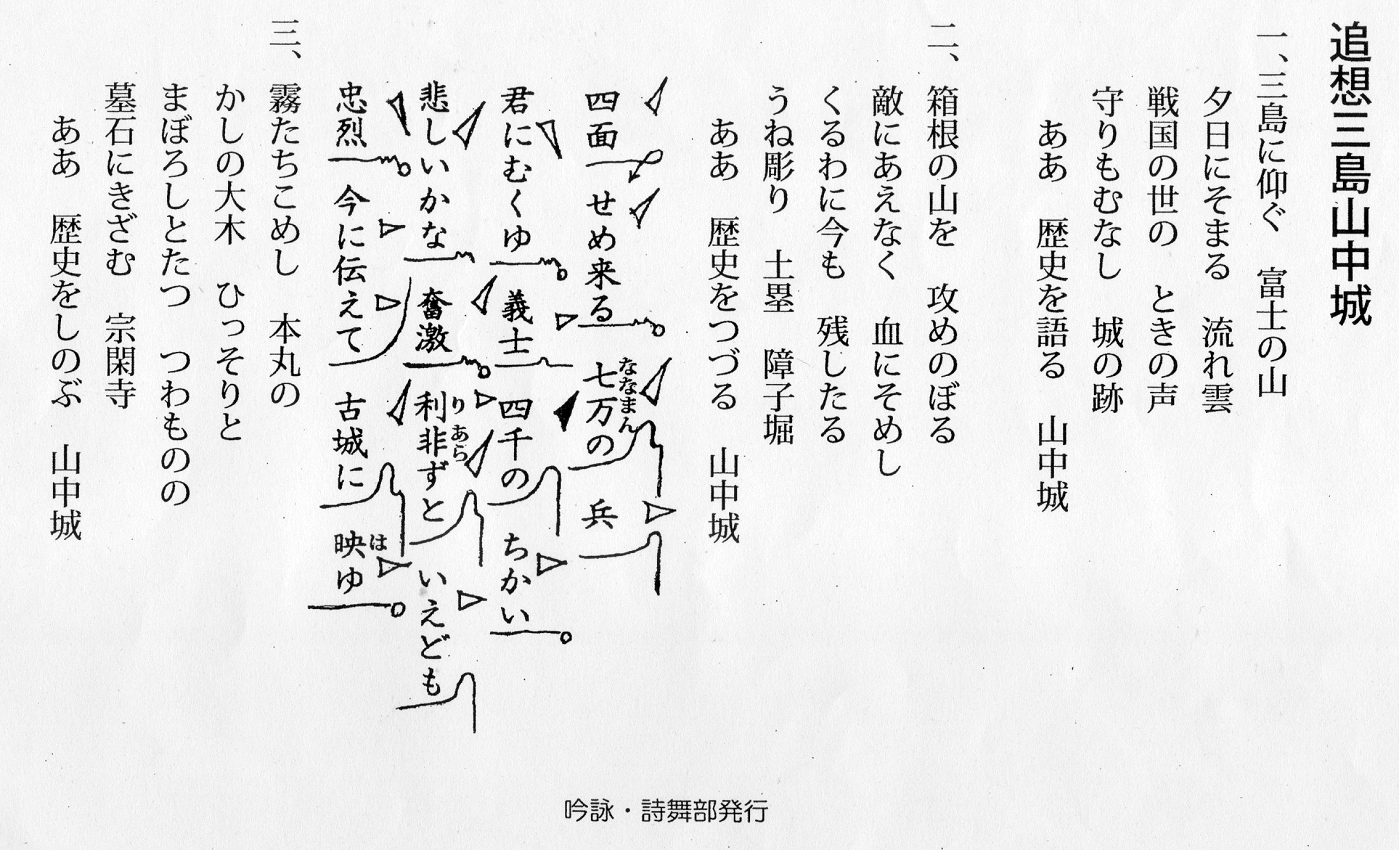 追想三島山中城
一、三島に仰ぐ　富士の山
夕日にそまる　流れ雲
戦国の世の　ときの声
守りもむなし　城の跡
ああ　歴史を語る　山中城
二、箱根の山を　攻めのぼる
敵にあえなく　血にそめし
くるわに今も　残したる
うね彫り　土塁　障子堀
ああ　歴史をつづる　山中城
四面　せめ来る　七万の　兵
ななまん
君にむくゆ　義士　四千の　ちかい
悲しいかな　奮激　利非ずと　いえども
り　あら
忠烈　今に伝えて　古城に　映ゆ
は
三、霧たちこめし　本丸の
かしの大木　ひっそりと
まぼろしとたつ　つわものの
墓石にきざむ　宗閑寺
ああ　歴史をしのぶ　山中城
吟詠・詩舞部発行